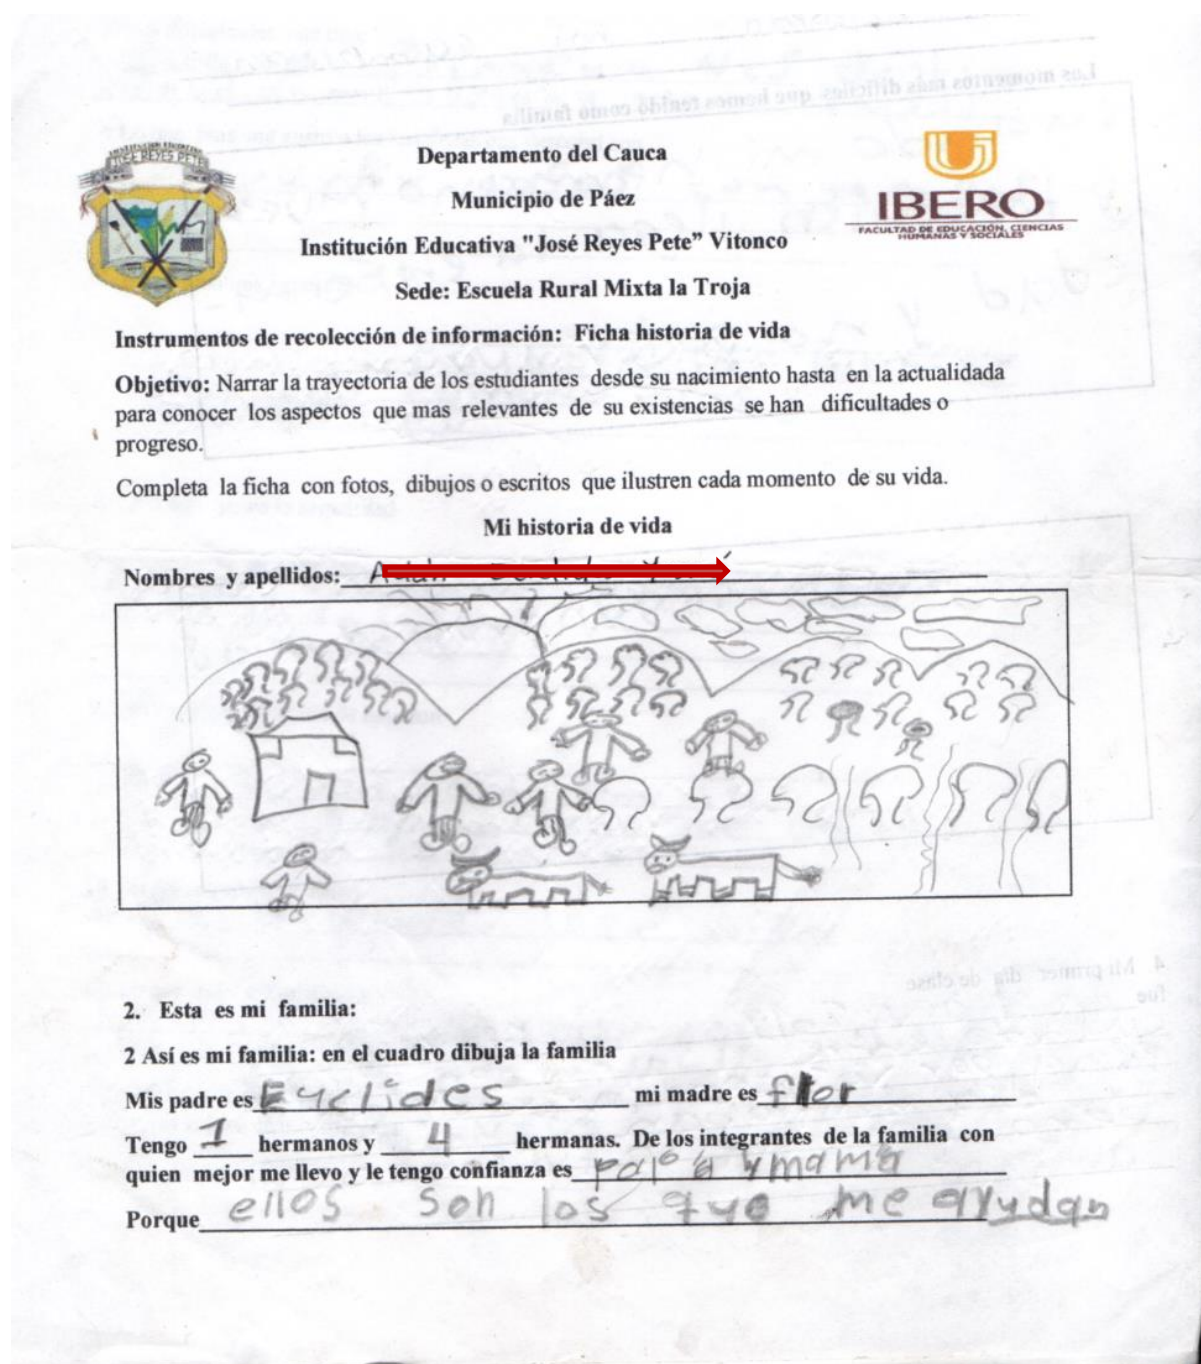 Departamento del Cauca
Municipio de Páez
Institución Educativa "José Reyes Pete” Vitonco
Sede: Escuela Rural Mixta la Troja
JOSE REYES PETE
IBERO
FACULTAD DE EDUCACIÓN, CIENCIAS
HUMANAS Y SOCIALES
Instrumentos de recolección de información: Ficha historia de vida
Objetivo: Narrar la trayectoria de los estudiantes desde su nacimiento hasta en la actualidada
para conocer los aspectos que mas relevantes de su existencias se han dificultades o
progreso.
Completa la ficha con fotos, dibujos o escritos que ilustren cada momento de su vida.
Mi historia de vida
Nombres y apellidos:
2. Esta es mi familia:
2 Así es mi familia: en el cuadro dibuja la familia
Mis padre es Euclides mi madre es flor
Tengo 1 hermanos y 4 hermanas. De los integrantes de la familia con
quien mejor me llevo y le tengo confianza es papá y mamá
Porque ellos son los que me ayudan